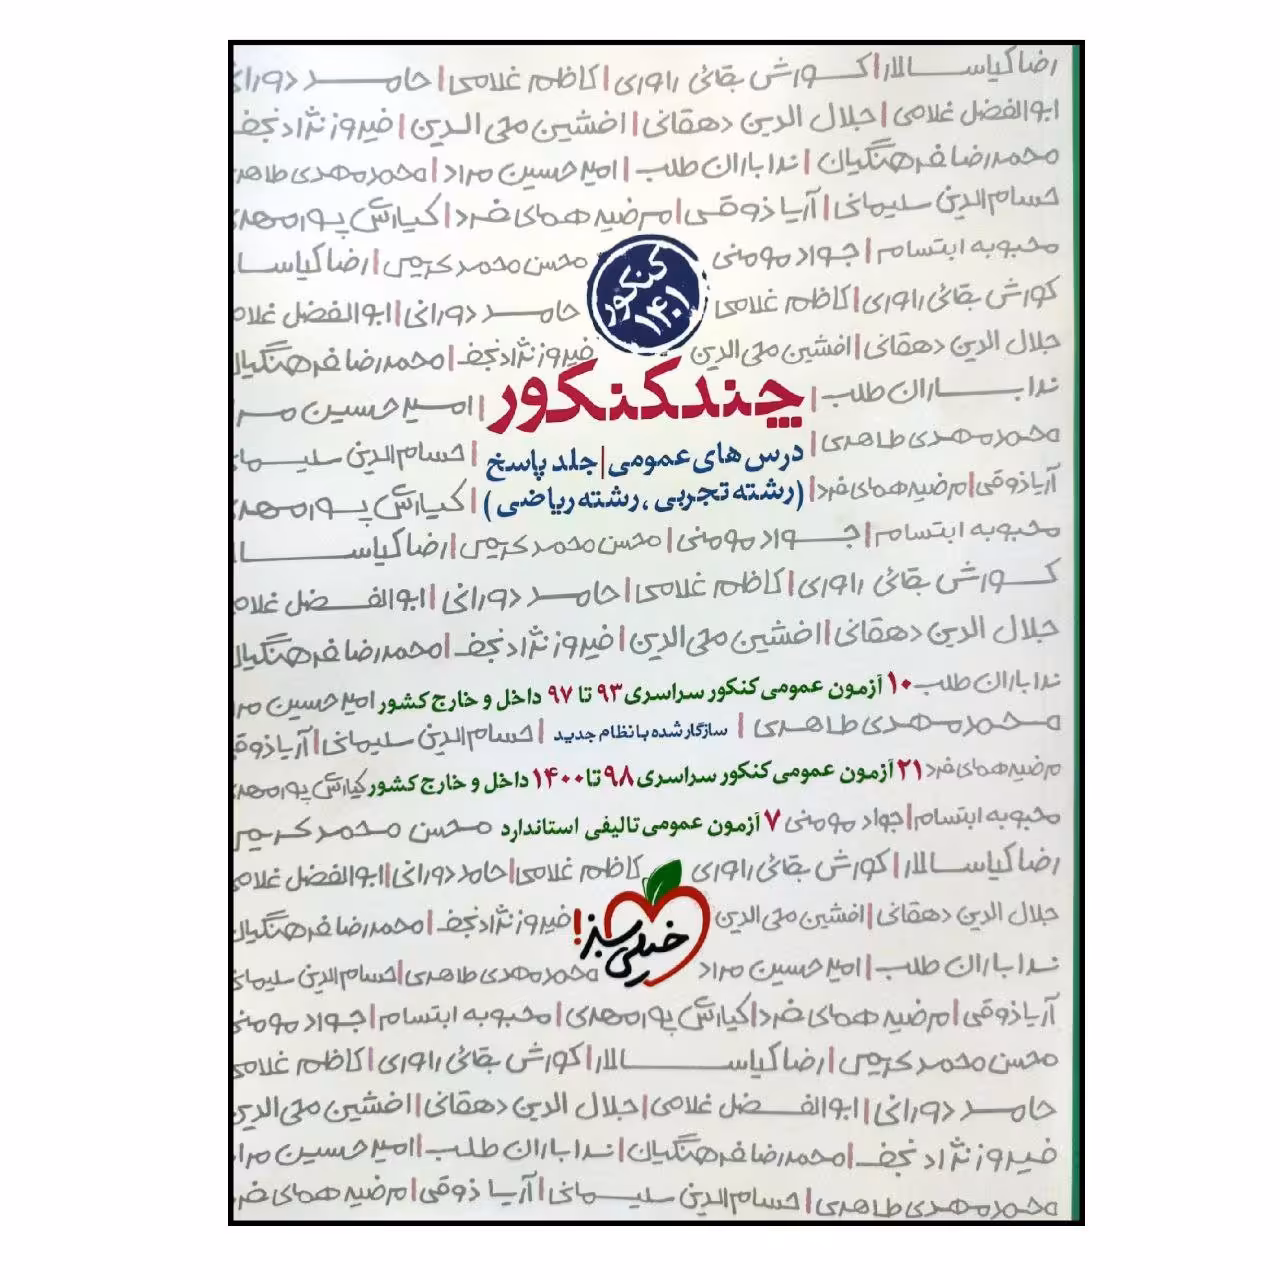 رضا کیاســـالار | کـــورش بقائی راوری | کاظم غلامی | حامـــد دورانی
ابوالفضل غلامی | جلال الدین دهقانی | افشین محی الـدین | فیروز نژادنجف
محمدرضا فرهنگیان | ندا باران طلب | امیرحسین مراد | محمدمهدی طاهر
حسام‌الدین سلیمانی | آریا ذوقـی | مرضیه همای فـرد | کیارش پـورمهد
محبوبه ابتسام | جواد مومنی محسن محمد کریمی | رضا کیاسـا
کنکور ۱۴۰۱
کورش بقائی راوری | کاظم غلامی حامـــد دورانی | ابوالفضل غلام
جلال الدین دهقانی | افشین محی الدین فیروز نژادنجف | محمدرضا فرهنگیان
ندا بـــاران طلب | چند کنکور | امیرحسین مر
محمدمهدی طاهری | درس های عمومی | جلد پاسخ | حسام‌الدین سلیـما
آریا ذوقی | مرضیه همای فرد | (رشته تجربی ، رشته ریاضی) | کیارش پـورمهد
محبوبه ابتسام | جـــواد مومنی | محسن محمد کریمی | رضا کیاســا
کـورش بقائی راوری | کاظم غلامی | حامـد دورانی | ابوالفـضل غلام
جلال الدین دهقانی | افشین محی الدین | فیروز نژادنجف | محمدرضا فرهنگیان
ندا باران طلب ۱۰ آزمون عمومی کنکور سراسری ۹۳ تا ۹۷ داخل و خارج کشور امیرحسین مرا
محـمدمهدی طـاهـری | سازگار شده با نظام جدید | حسام‌الدین سلیمانی | آریا ذوق
مرضیه همای فرد ۲۱ آزمون عمومی کنکور سراسری ۹۸ تا ۱۴۰۰ داخل و خارج کشور کیارش پورمهد
محبوبه ابتسام | جواد مومنی ۷ آزمون عمومی تالیفی استاندارد محسن محمد کریم
رضا کیاسـالار | کورش بقائی راوری کاظم غلامی | حامد دورانی | ابوالفضل غلامی
جلال الدین دهقانی | افشین محی الدین فیروز نژادنجف | محمدرضا فرهنگیان
خیلی سبز!
ندا باران طلب | امیرحسین مراد محمدمهدی طاهری | حسام‌الدین سلیمان
آریا ذوقی | مرضیه همای فرد | کیارش پورمهدی | محبوبه ابتسام | جواد مومنی
محسن محمد کریمی | رضا کیاســـالار | کورش بقائی راوری | کاظم غلامی
حامـد دورانی | ابوالفـضل غلامی | جلال الدین دهقانی | افشین محی الدین
فیروز نژاد نجف | محمدرضا فرهنگیان | ندا باران طلب | امیرحسین مراد
محمدمهدی طاهری | حسام‌الدین سلیـمانی | آریا ذوقی | مرضیه همای فر